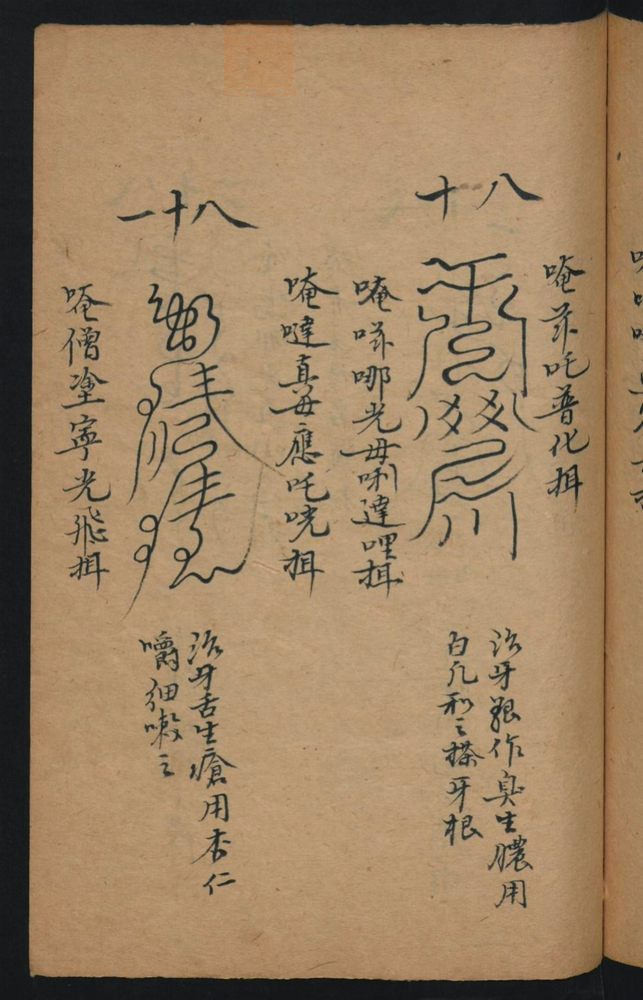 八十
唵茶吒普化揖
唵哢哪光毋唎達哩揖
治牙艱作臭生膿用
白凡和之搽牙根
八十一
唵噠真毋應吒唬揖
唵僧塗寧光飛揖
治牙舌生瘡用杏仁
嚼細嗽之